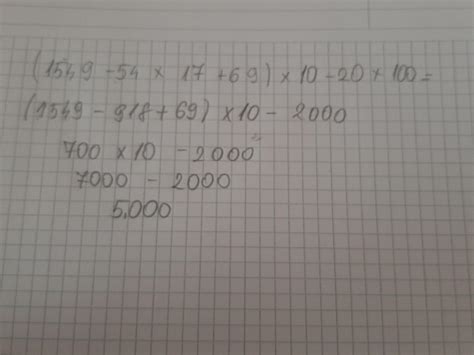 (1549 - 54 × 17 + 69) × 10 - 20 × 100 =
(1549 - 918 + 69) × 10 - 2000
700 × 10 - 2000 =
7000 - 2000
5.000